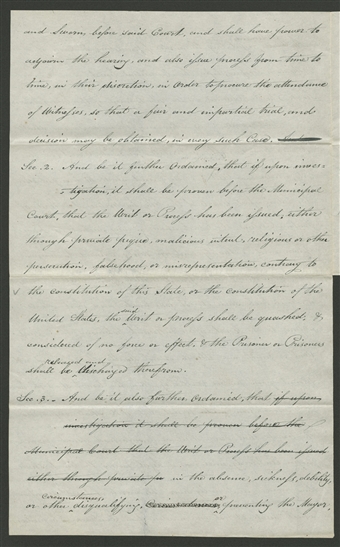 and Sworn before said Court, and shall have power to
adjourn the hearing, and also issue process from time to
time, in their discretion, in Order to procure the attendance
of Witnesses, so that a fair and impartial trial, and
decision may be obtained, in every such Case.
Sec. 2. And be it further Ordained, that if upon inves-
-tigation, it shall be proven before the Municipal
Court, that the Writ or Process has been issued, either
through private pique, malicious intent, religious or other
persecution, falsehood, or misrepresentation, contrary to
the constitution of this State, or the constitution of the
United States, the said Writ or process shall be quashed, &
considered of no force or effect, & the Prisoner or Prisoners
released and
shall be discharged therefrom.
Sec. 3. - And be it also further Ordained, that if upon
investigation it shall be proven before the
Municipal Court that the Writ or Process has been issued
either through private pi in the absence, sickness, debility,
circumstances or
or other disqualifying, Circumstances preventing the Mayor